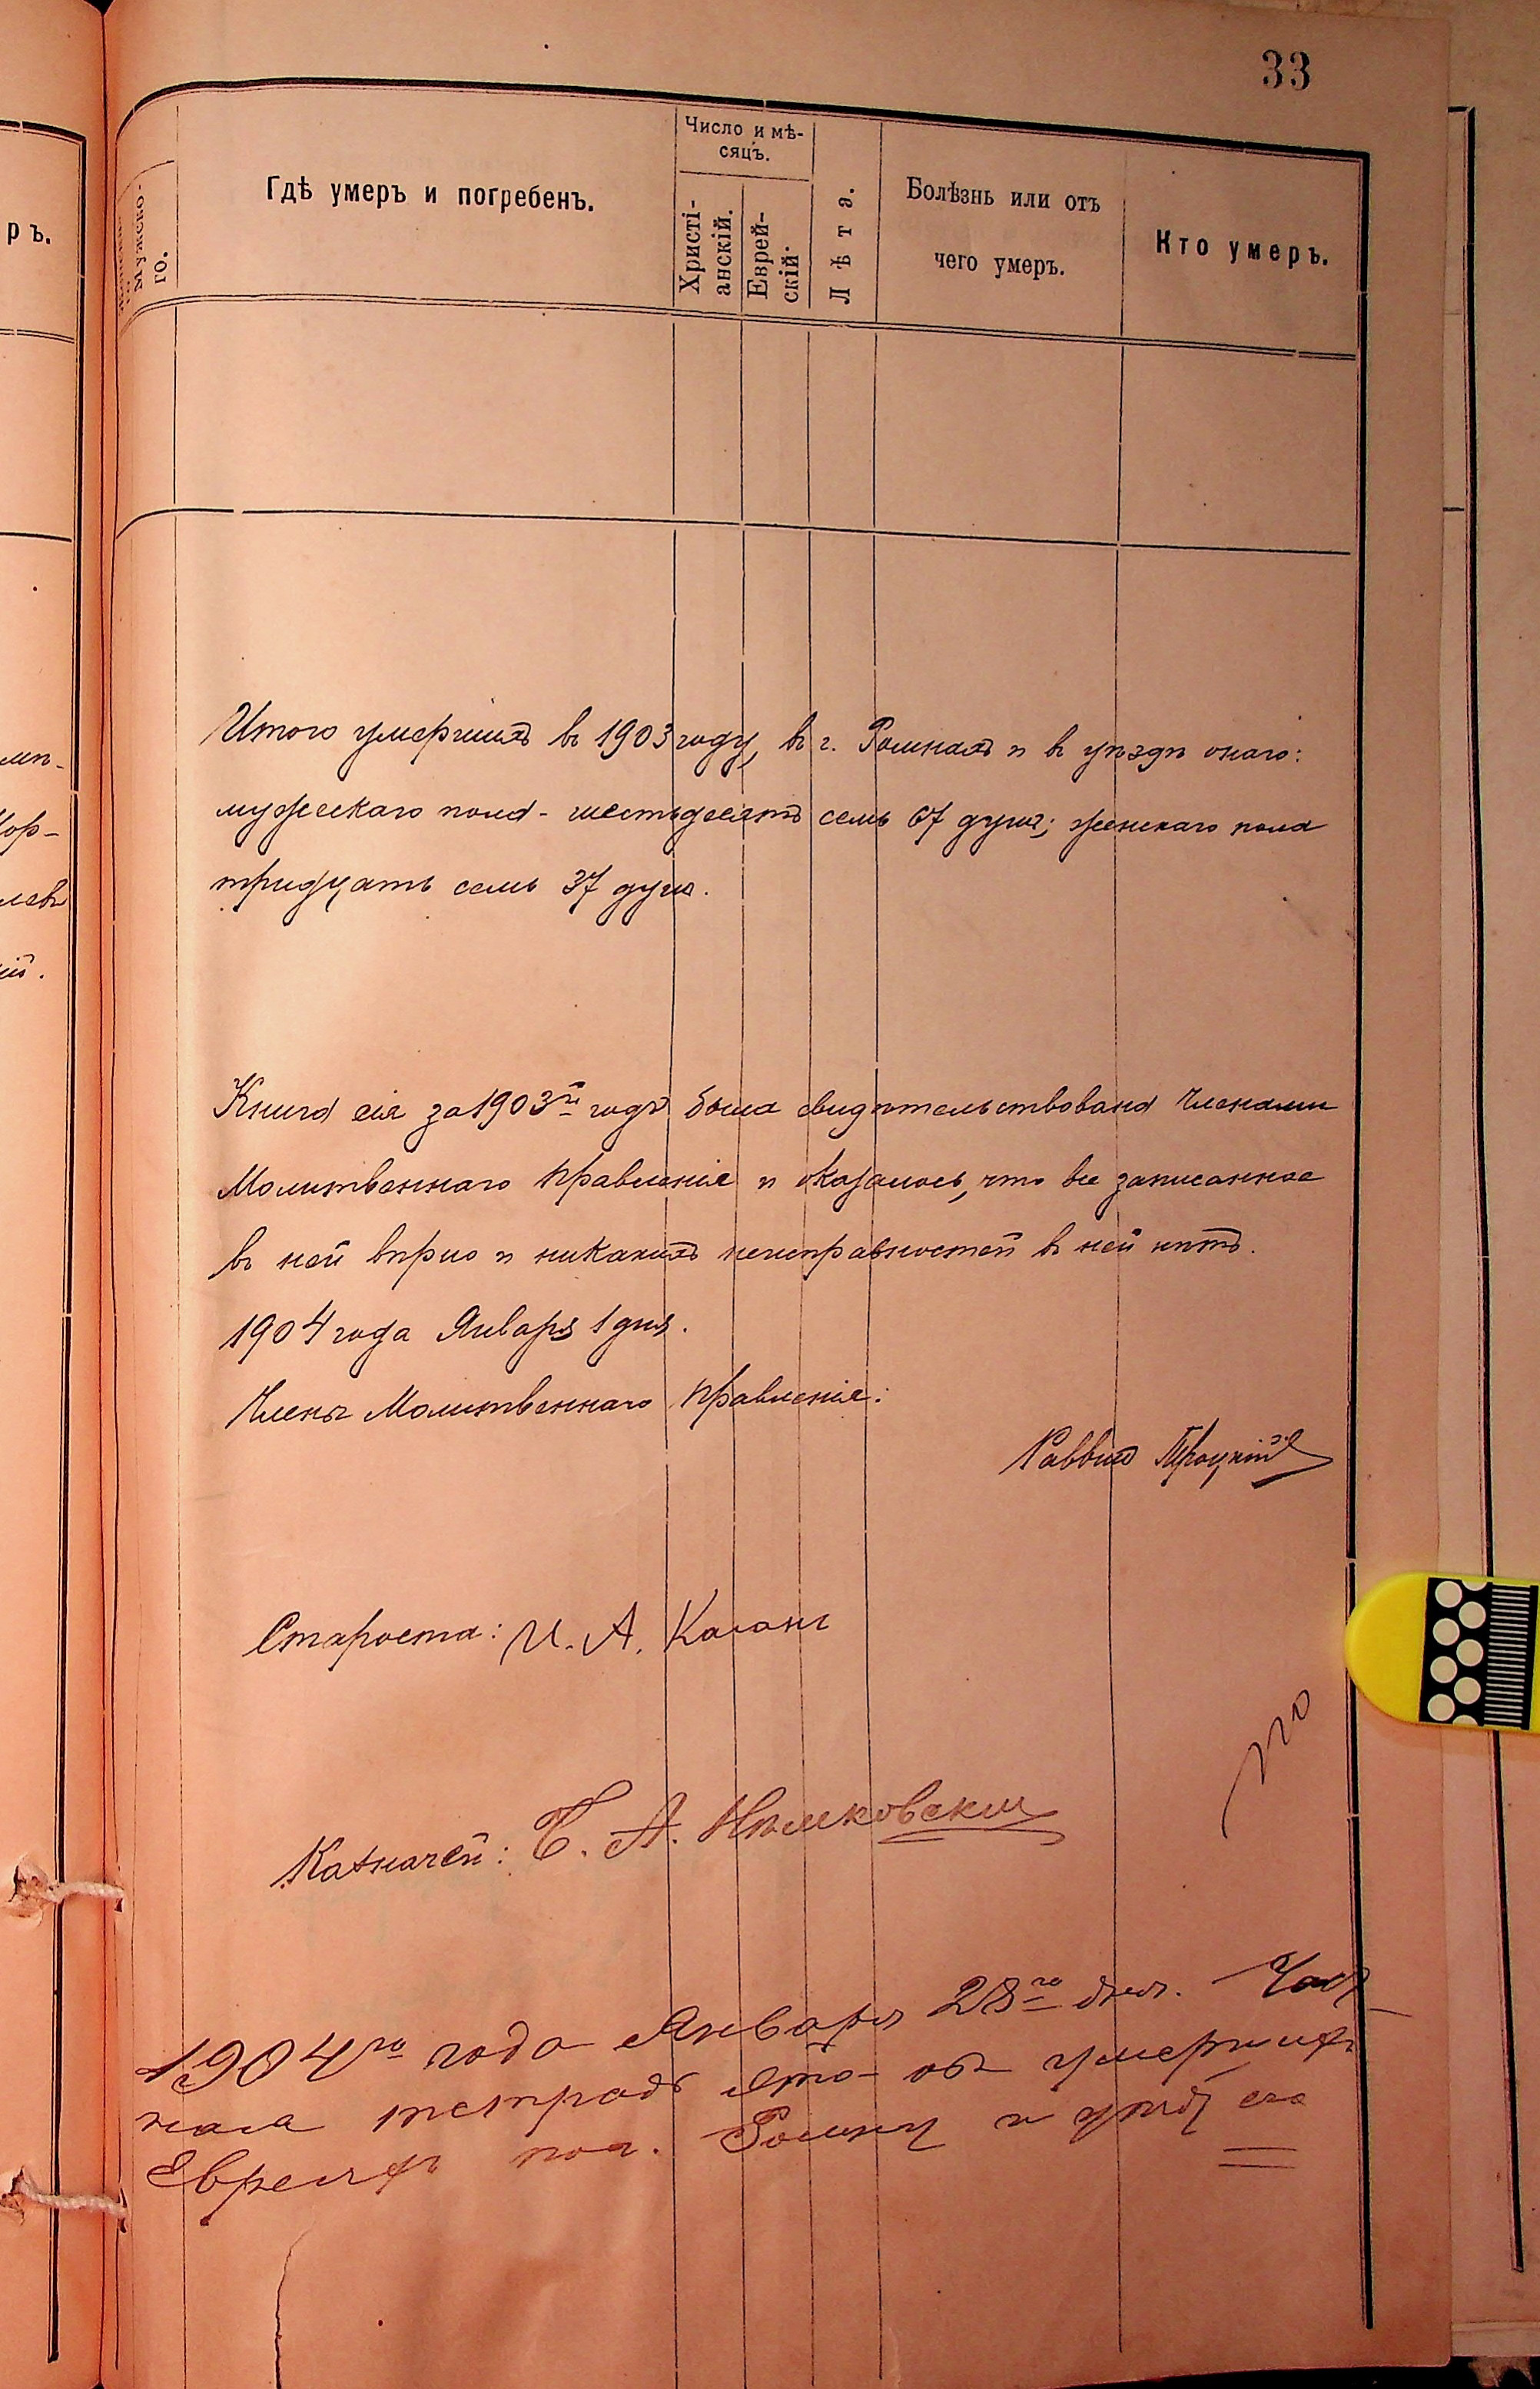 33
Число и мѣ-
сяцъ.
Мужско-
го.
Гдѣ умеръ и погребенъ.
Христі-
анскій.
Еврей-
скій.
Лѣта.
Болѣзнь или отъ
чего умеръ.
Кто умеръ.
ръ.
Итого умершихъ въ 1903 году, въ г. Ромнахъ и въ уѣздѣ онаго:
мужескаго пола - шестьдесятъ семь 67 душъ; женскаго пола
тридцать семь 37 душъ.
Книга сія за 1903й годъ была свидѣтельствована Членами
Молитвеннаго Правленія и оказалось, что все записанное
въ ней вѣрно и никакихъ неисправностей въ ней нѣтъ.
1904 года Января 1 дня.
Члены Молитвеннаго Правленія:
Раввинъ Троцкій
Староста: И. А. Каганъ
Казначей: Б. А.
1904го года Января 28го дня.
тетрадь объ умершихъ
Евреяхъ по г. Ромну и его